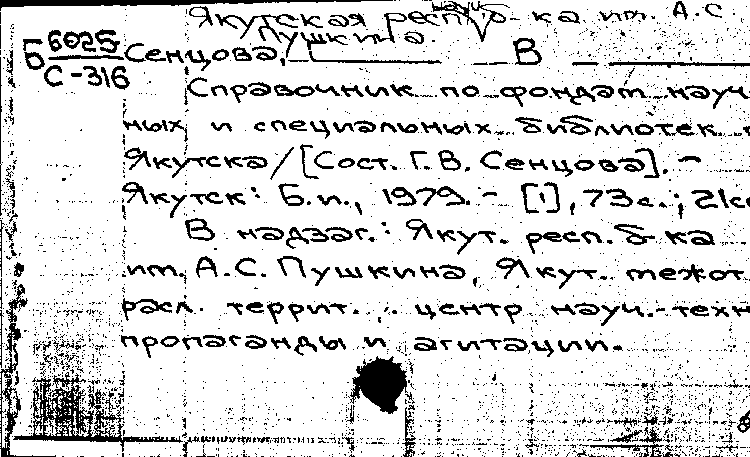 Якутская респ. науч. б-ка им. А.С
Пушкина.
Б 6025 Сенцова, В
С-316
Справочник по фондам науч
ных и специальных библиотек г
Якутска/[Сост. Г.В. Сенцова]. -
Якутск: Б.и., 1979. - [1], 73 с.; 21см
В надзаг.: Якут. респ. б-ка
им. А.С. Пушкина, Якут. межот
расл. террит. центр науч.-техн
пропаганды и агитации.